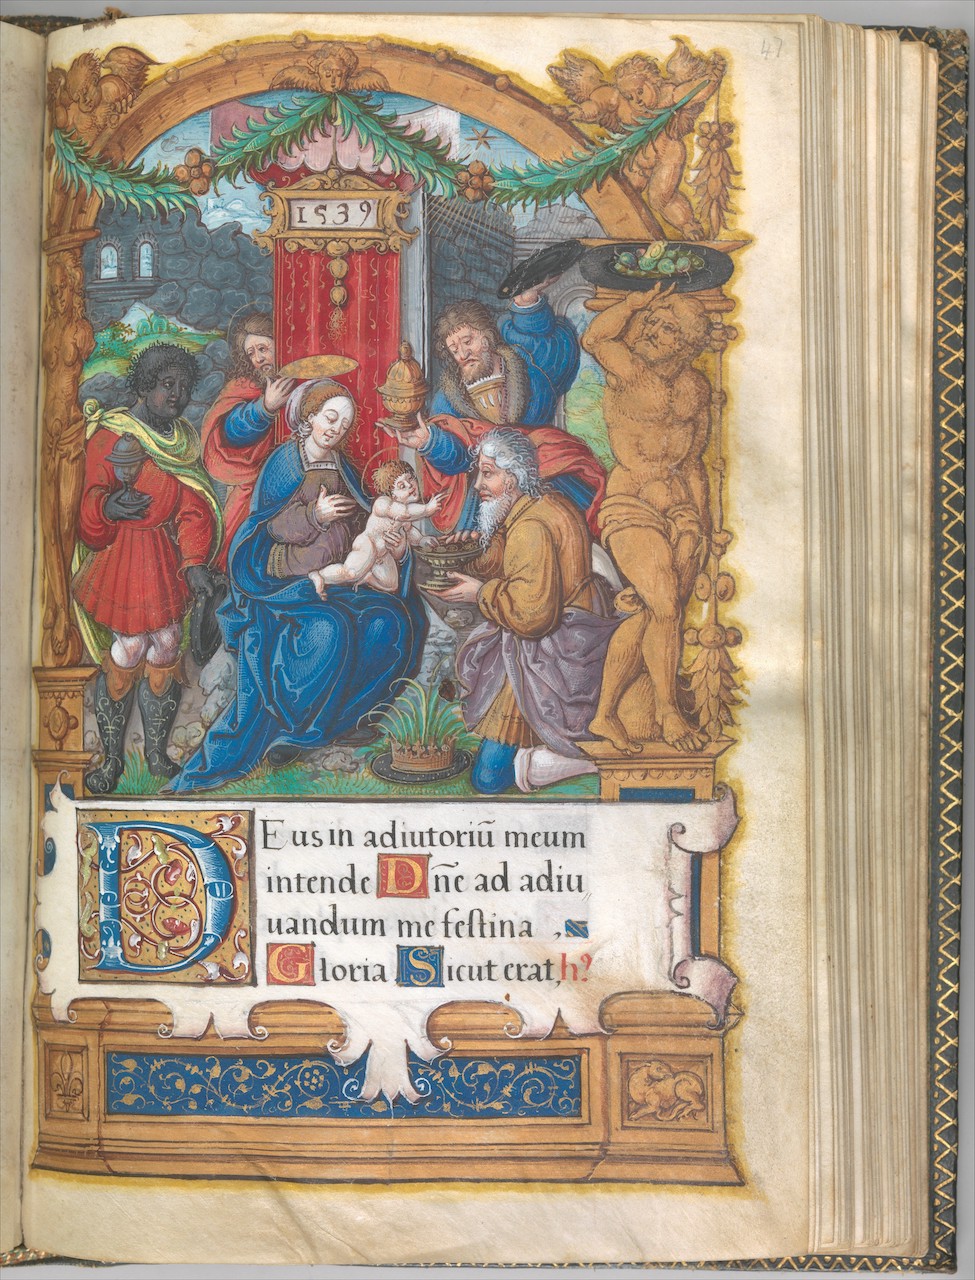 47
1539
Deus in adiutoriū meum
intende Dn̄e ad adiu
uandum me festina ,
Gloria Sicut erat, h9